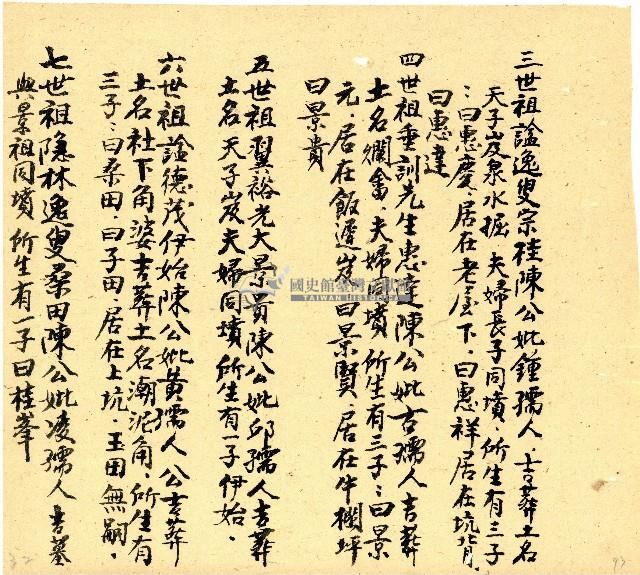 三世祖謚逸叟宗桂陳公妣鍾孺人．吉葬土名
天子岌泉水掘．夫婦長子同墳．所生有三子
：曰惠慶．居在老屋下．曰惠祥居在坑背．
曰惠達
四世祖垂訓先生惠達陳公妣古孺人吉葬
土名爛畬．夫婦同墳所生有三子：曰景
元．居在飯邊岌．曰景賢．居在牛欄坪
曰景貴
五世祖翼裕老大景貢陳公妣邱孺人吉葬
土名天子岌夫婦同墳所生有一子伊始．
六世祖謚德茂伊始陳公妣黃孺人公吉葬
土名社下角婆吉葬土名潮泥角．所生有
三子：曰桑田．曰子田．居在上坑．玉田無嗣．
七世祖隐林逸叟桑田陳公妣凌孺人吉墓
與景祖同墳所生有一子曰桂峯
國史館臺灣文獻館
TAIWAN HISTORICA